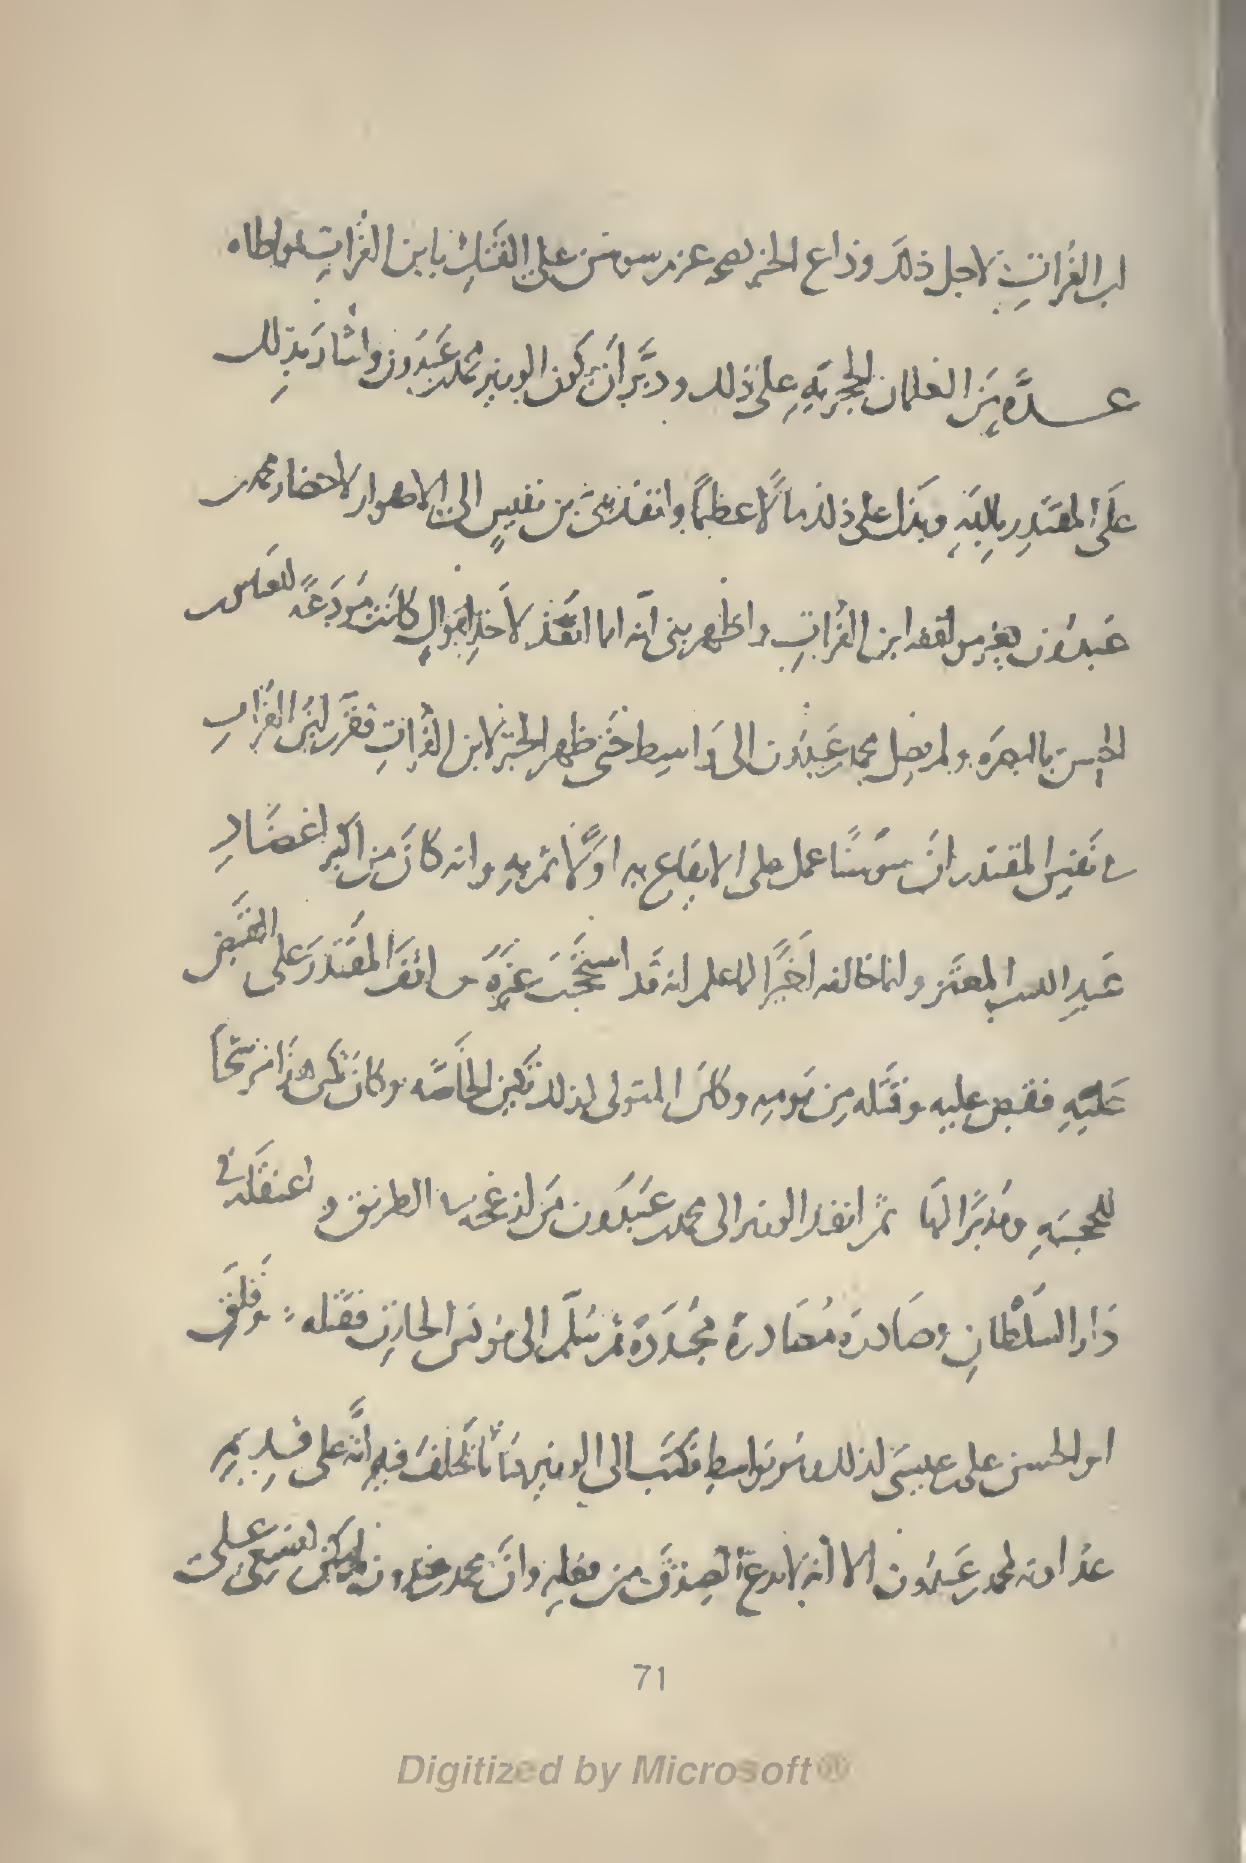 ابن الفُراتِ لاجل ذلكَ وذاع الخبر بصحه عزم سوسن على الفَتكِ بابن الفُراتِ ومواطاه
عــدَّه مِنَ الغلمان الحجريّهِ على ذلك ودبَّر أن يكون الوزير محمد بن عَبدُون واشارَ بذِلك
علَى المقتَدِر باللهِ وبَذل على ذلك مالًا عظيمًا وانفذ بنى بن نفيسٍ الى الاهواز لاحضار محمد بن
عَبدُون بغير موافقه ابن الفُراتِ واظهر بنى انّه انما انفَذ لاَخذِ اَموالٍ كانَت مُودَعَةً للعباس بن
الحسن بالبصرَه ولم يصِل محمد بن عَبدُون الى وَاسِط حَتى ظهر الخبر لابن الفُراتِ فقرَّر ابنُ الفُراتِ
فى نَفسِ المقتدر انَّ سَوسَنًا عمل على الايقاع به اوّلًا ثم بهِ وانه كانَ من اَكبر اعضَادِ
عَبدِ الله بن المعتَز وانما خالفه اَخيرًا لما علم انه قَد استَحجَبَ غيرَهُ واتفقَ المقتَدر على القَبض
عَليهِ فقبض عليه وقَتَله مِن يَومهِ وكانَ المتولى لذلك تكين الخاصّه وكانَ تكين هذا مُرشّحًا
للحجبهِ ومُدبّرًا لها ثم انفذ الوزير الى محمد بن عَبدُون مَن ازعجه من الطريق واعتقلَه فى
دَار السُلطانِ وصَادرَه مُصَادرةً مجُدَدَة ثم سُلّم الى مونس الخازن فقتله وقلَق
ابو الحسن على بن عيسَى لذلك وهو بواسِط فكتَب الى الوزير كتابًا يَحلفُ فيهِ انّه على قَدِيمِ
عدَاوته لمحمد بن عَبدُون الا انه لا يدعُ الصِدقَ من فعلِه وانَّ محمد بن عبدون لم يكن ليَسعَى على
71
Digitized by Microsoft®